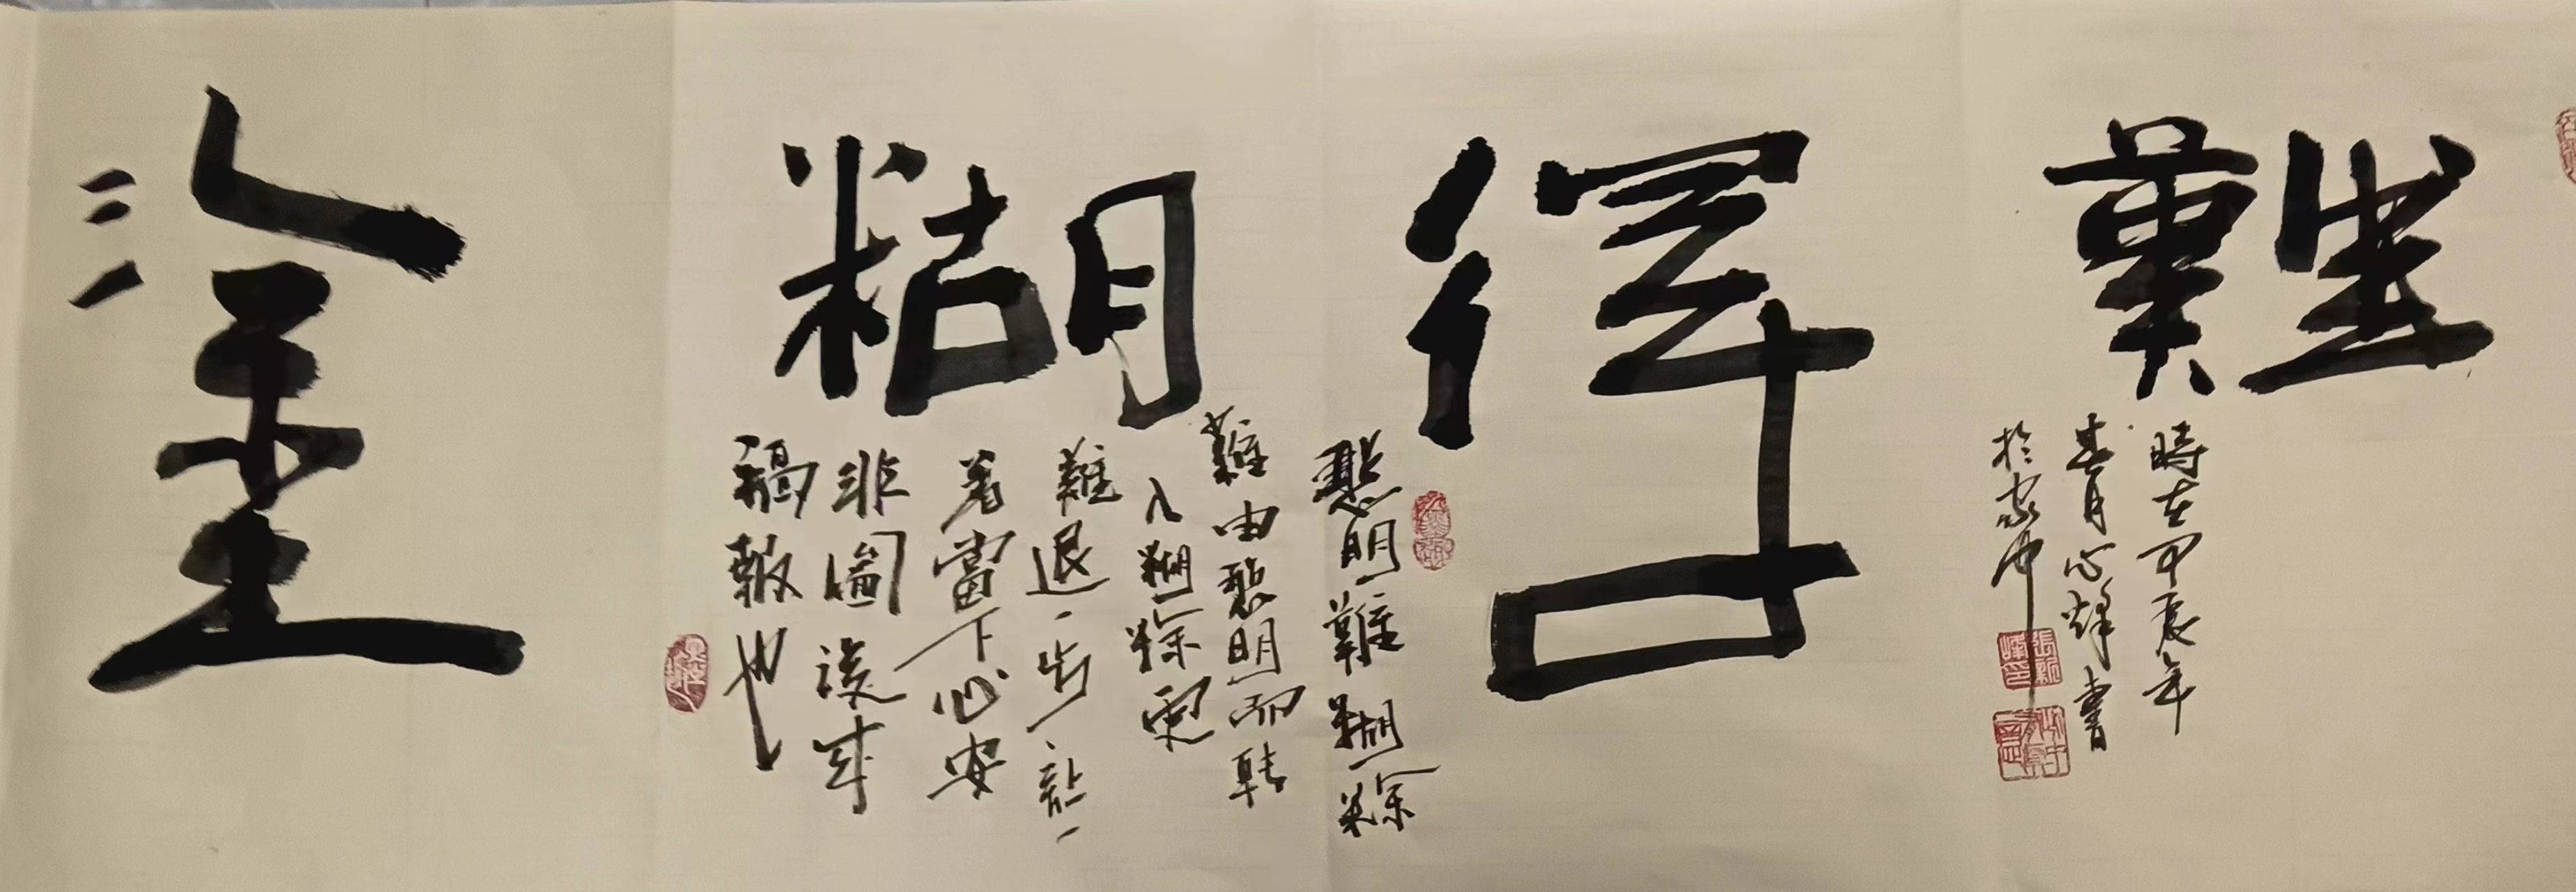 難得糊塗
聰明難糊塗
難由聰明而轉
入糊塗更
難退一步放一
著當下心安
非圖後來
福報也
時在甲辰年
春月心烽書
於家中
張新峰印